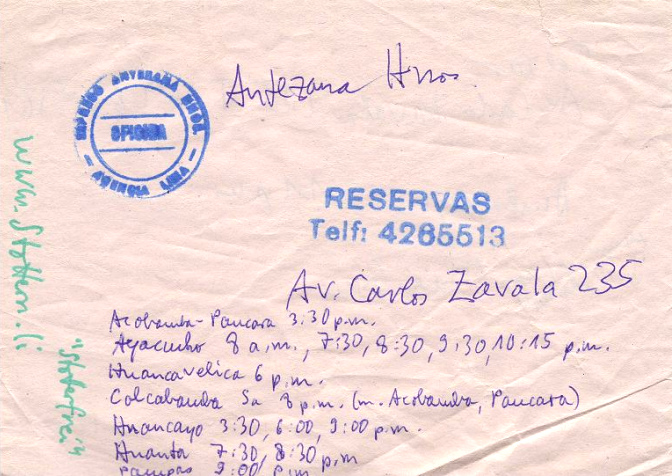 EMPRESA ANTEZANA HNOS.
OFICINA
- AGENCIA LIMA -
Antezana Hnos.
RESERVAS
Telf: 4285513
Av. Carlos Zavala 235
Acobamba - Paucara 3:30 p.m.
Ayacucho 8 a.m., 7:30, 8:30, 9:30, 10:15 p.m.
Huancavelica 6 p.m.
Colcabamba Sa 8 p.m. (m. Acobamba, Paucara)
Huancayo 3:30, 6:00, 9:00 p.m.
Huanta 7:30, 8:30 p.m
Pampas 9:00 p.m
www.stottern.li
"Stotterfrei"